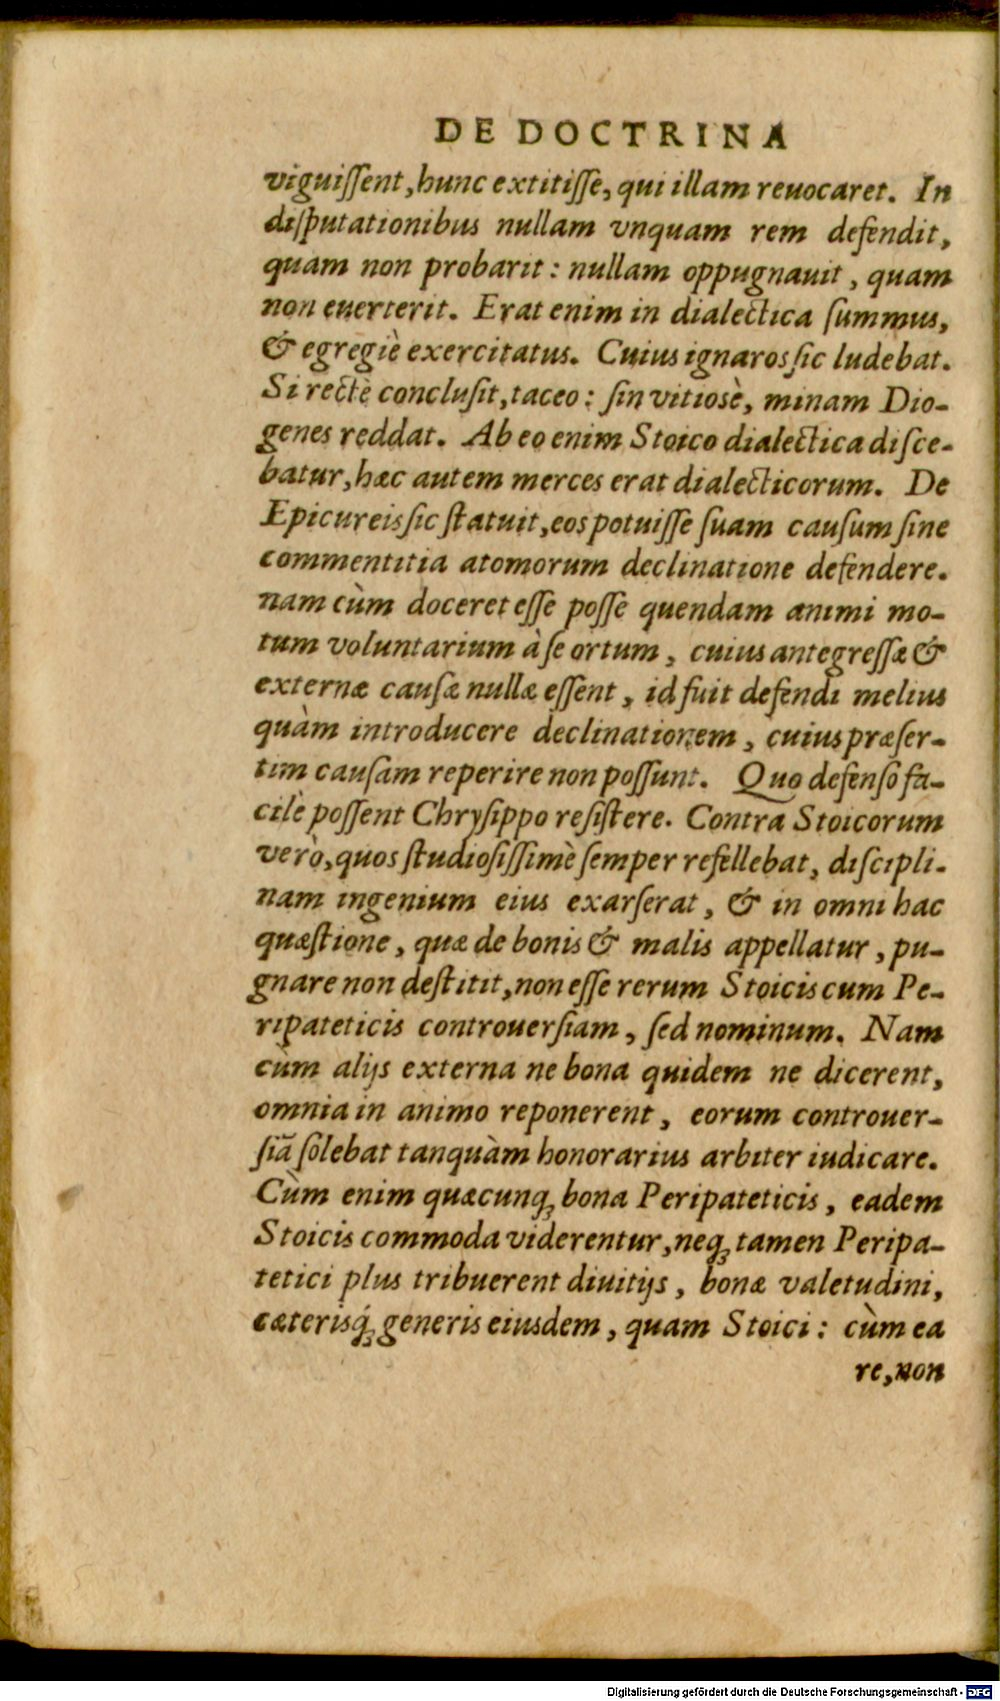 DE DOCTRINA
viguiſſent, hunc extitiſſe, qui illam reuocaret. In
diſputationibus nullam vnquam rem defendit,
quam non probarit: nullam oppugnauit, quam
non euerterit. Erat enim in dialectica ſummus,
& egregiè exercitatus. Cuius ignaros ſic ludebat.
Si rectè concluſit, taceo: ſin vitiosè, minam Dio-
genes reddat. Ab eo enim Stoico dialectica diſce-
batur, hæc autem merces erat dialecticorum. De
Epicureis ſic ſtatuit, eos potuiſſe ſuam cauſum ſine
commentitia atomorum declinatione defendere.
nam cùm doceret eſſe poſſe quendam animi mo-
tum voluntarium à ſe ortum, cuius antegreſſæ &
externæ cauſæ nullæ eſſent, id fuit defendi melius
quàm introducere declinationem, cuius præſer-
tim cauſam reperire non poſſunt. Quo defenſo fa-
cilè poſſent Chryſippo reſiſtere. Contra Stoicorum
verò, quos ſtudioſiſſimè ſemper refellebat, diſcipli-
nam ingenium eius exarſerat, & in omni hac
quæſtione, quæ de bonis & malis appellatur, pu-
gnare non deſtitit, non eſſe rerum Stoicis cum Pe-
ripateticis controuerſiam, ſed nominum. Nam
cùm alijs externa ne bona quidem ne dicerent,
omnia in animo reponerent, eorum controuer-
ſiã ſolebat tanquàm honorarius arbiter iudicare.
Cùm enim quæcunq; bona Peripateticis, eadem
Stoicis commoda viderentur, neq; tamen Peripa-
tetici plus tribuerent diuitijs, bonæ valetudini,
cæterisq́; generis eiusdem, quam Stoici: cùm ea
re, non
Digitalisierung gefördert durch die Deutsche Forschungsgemeinschaft - DFG